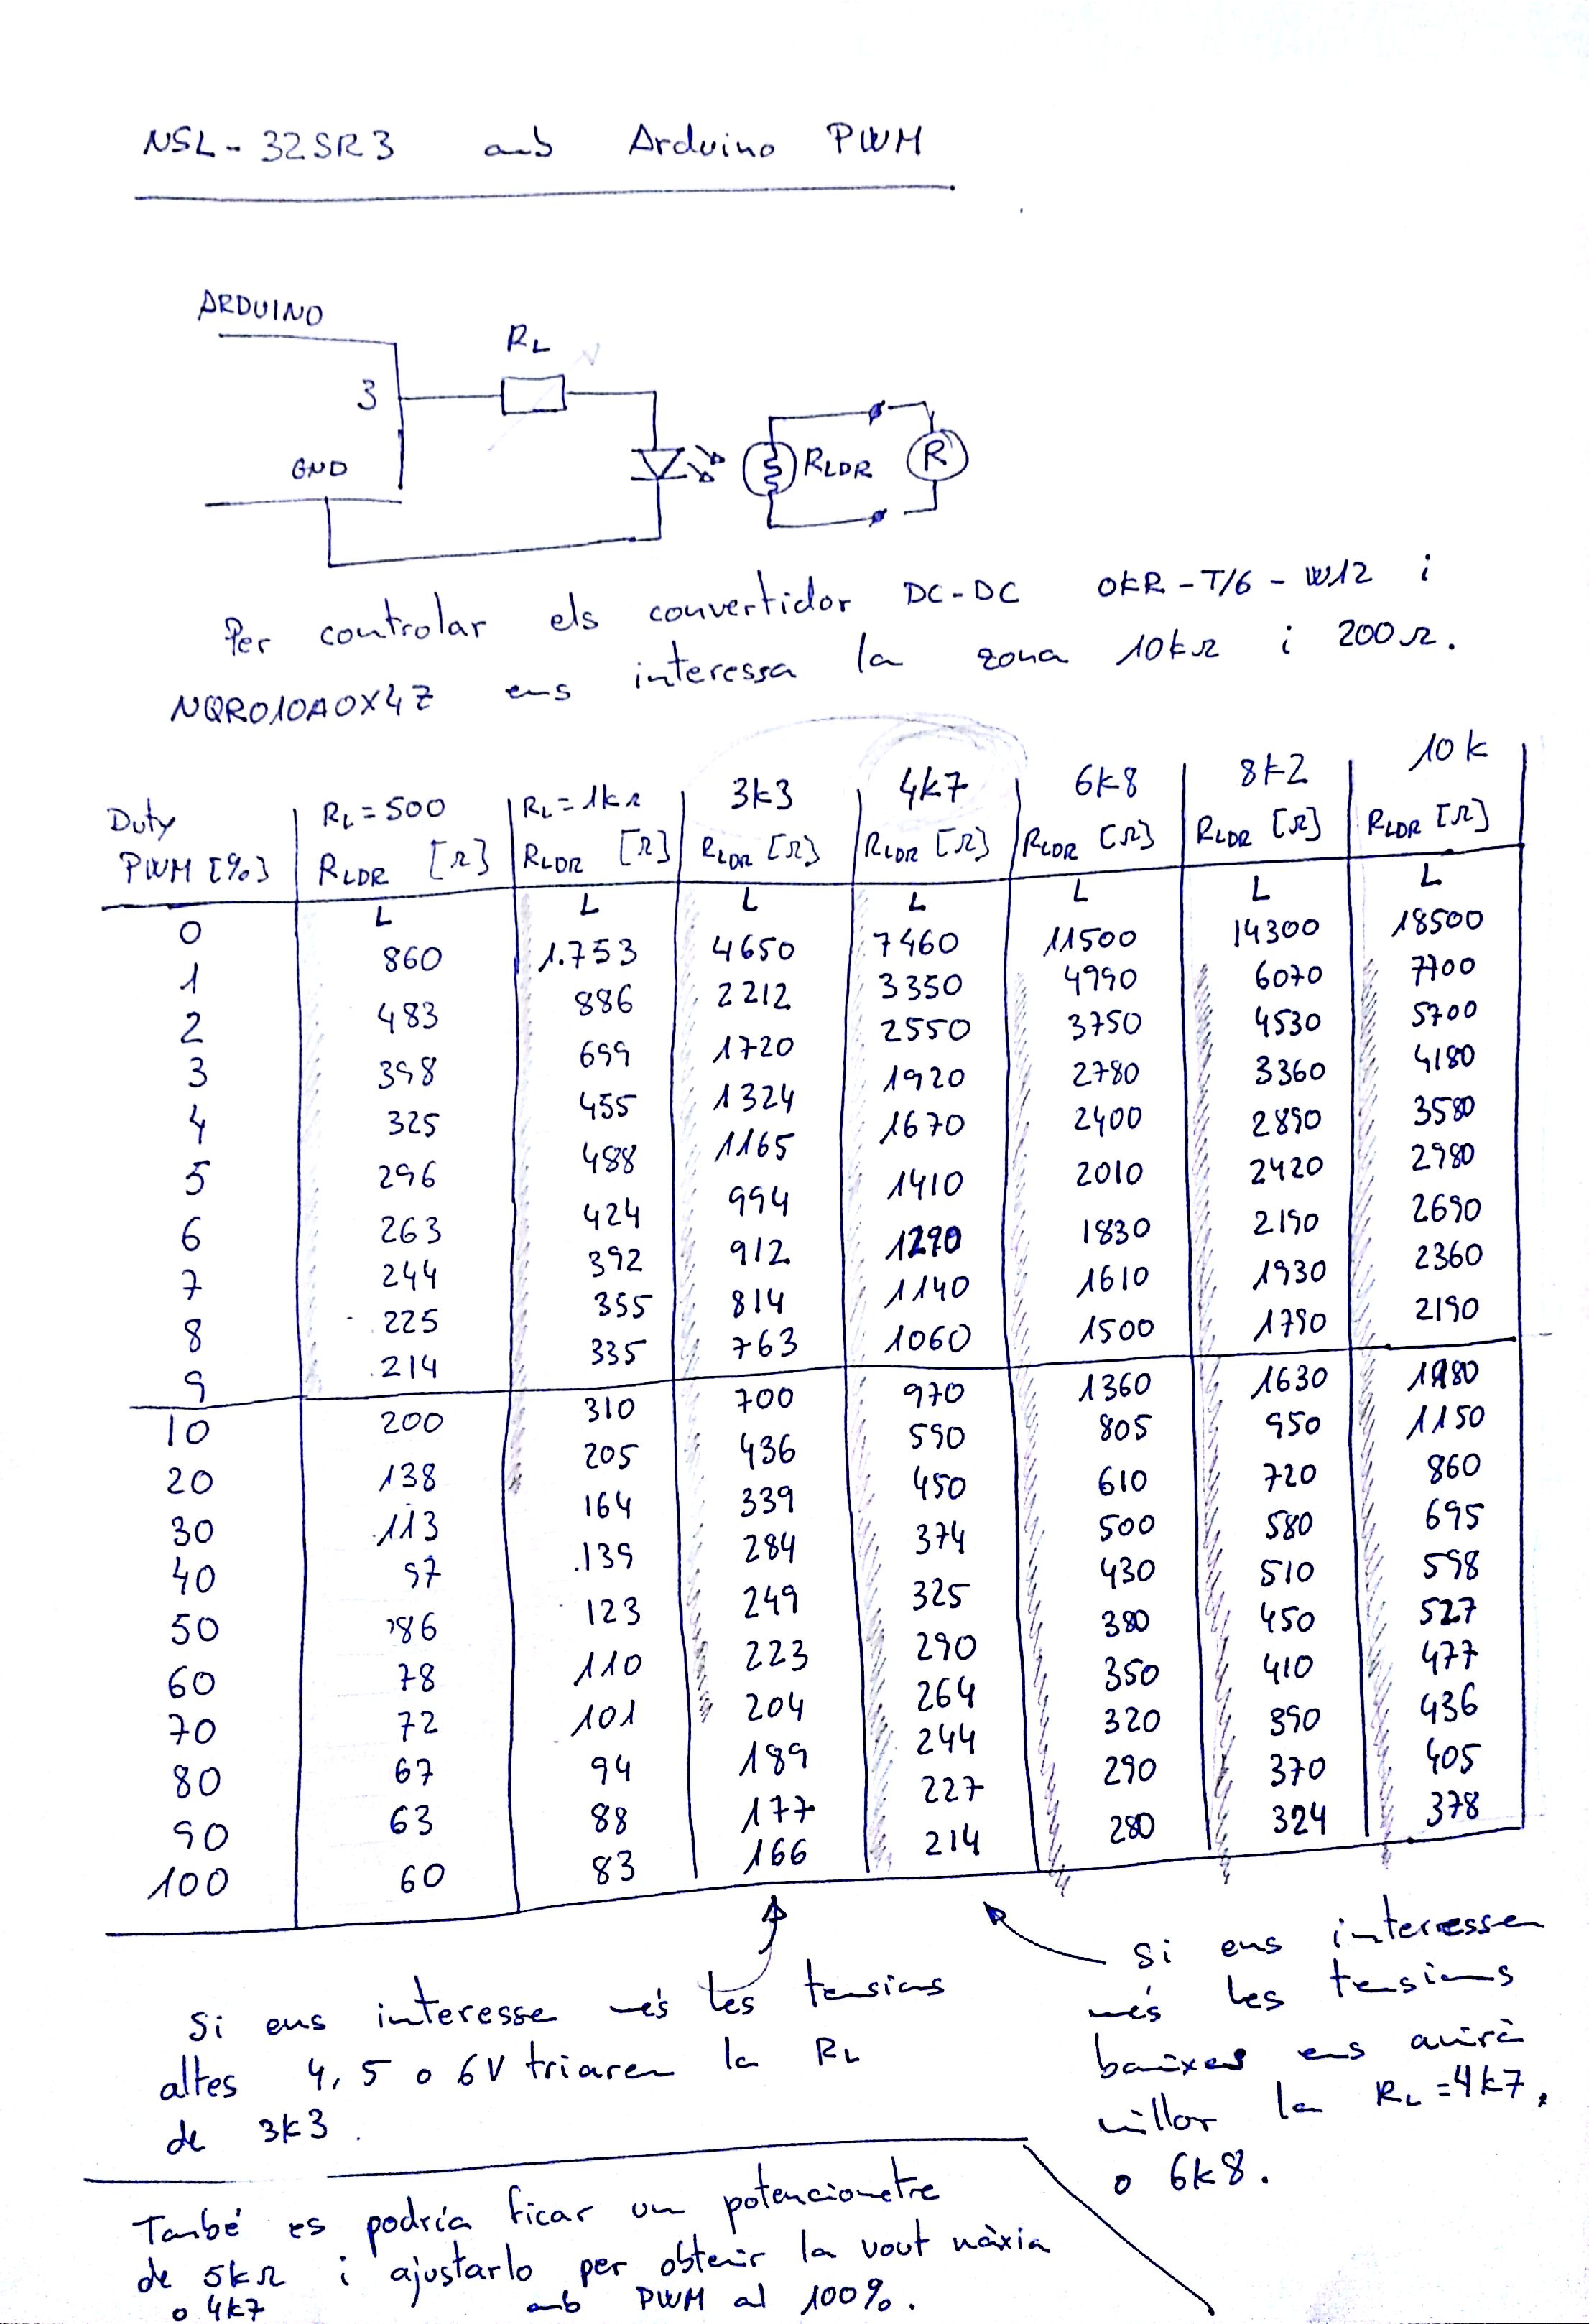 NSL-32SR3 amb Arduino PWM
ARDUINO
RL
3
GND
RLDR
R
Per controlar els convertidor DC-DC OKR-T/6-W12 i
NQR010A0X4Z ens interessa la zona 10kΩ i 200Ω.
Duty PWM [%] | RL=500 RLDR [Ω] | RL=1kΩ RLDR [Ω] | 3k3 RLDR [Ω] | 4k7 RLDR [Ω] | 6k8 RLDR [Ω] | 8k2 RLDR [Ω] | 10k RLDR [Ω]
0 L L L L L L L
1 860 1.753 4650 7460 11500 14300 18500
2 483 886 2212 3350 4990 6070 7700
3 398 699 1720 2550 3750 4530 5700
4 325 455 1324 1920 2780 3360 4180
5 296 488 1165 1670 2400 2890 3580
6 263 424 994 1410 2010 2420 2980
7 244 392 912 1290 1830 2190 2690
8 225 355 814 1140 1610 1930 2360
9 214 335 763 1060 1500 1790 2190
10 200 310 700 970 1360 1630 1980
20 138 205 436 590 805 950 1150
30 113 164 339 450 610 720 860
40 97 139 284 374 500 580 695
50 86 123 249 325 430 510 598
60 78 110 223 290 380 450 527
70 72 101 204 264 350 410 477
80 67 94 189 244 320 390 436
90 63 88 177 227 290 370 405
100 60 83 166 214 280 324 378
Si ens interesse més les tensions
altes 4, 5 o 6V triarem la RL
de 3k3.
Si ens interessen
més les tensions
baixes ens anirà
millor la RL=4k7,
o 6k8.
També es podría ficar un potenciometre
de 5kΩ i ajustarlo per obtenir la vout màxia
o 4k7 amb PWM al 100%.